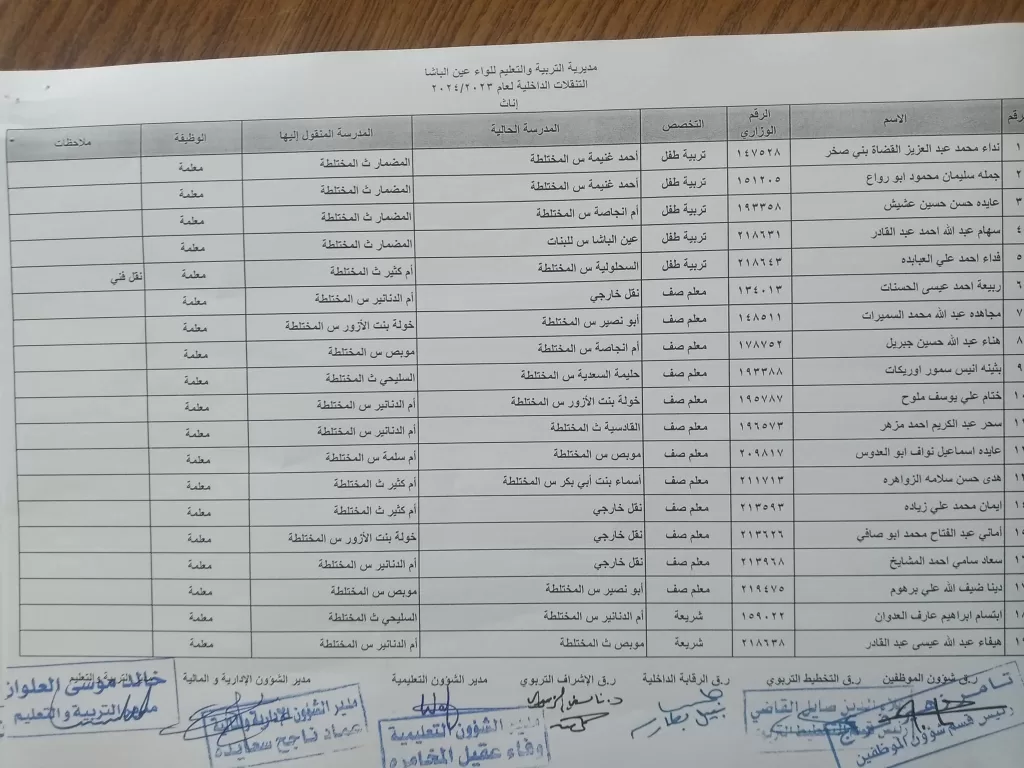 مديرية التربية والتعليم للواء عين الباشا
التنقلات الداخلية لعام ٢٠٢٤/٢٠٢٣
إناث
الرقم الاسم الرقم الوزاري التخصص المدرسة الحالية المدرسة المنقول إليها الوظيفة ملاحظات
١ نداء محمد عبد العزيز القضاة بني صخر ١٤٧٥٢٨ تربية طفل أحمد غنيمة س المختلطة المضمار ث المختلطة معلمة
٢ جمله سليمان محمود ابو رواع ١٥١٢٠٥ تربية طفل أحمد غنيمة س المختلطة المضمار ث المختلطة معلمة
٣ عايده حسن حسين عشيش ١٩٣٣٥٨ تربية طفل أم انجاصة س المختلطة المضمار ث المختلطة معلمة
٤ سهام عبد الله احمد عبد القادر ٢١٨٦٣١ تربية طفل عين الباشا س للبنات المضمار ث المختلطة معلمة
٥ فداء احمد علي العبابده ٢١٨٦٤٣ تربية طفل السحلولية س المختلطة أم كثير ث المختلطة معلمة نقل فني
٦ ربيعة احمد عيسى الحسنات ١٣٤٠١٣ معلم صف نقل خارجي أم الدنانير س المختلطة معلمة
٧ مجاهده عبد الله محمد السميرات ١٤٨٥١١ معلم صف أبو نصير س المختلطة خولة بنت الأزور س المختلطة معلمة
٨ هناء عبد الله حسين جبريل ١٧٨٧٥٢ معلم صف أم انجاصة س المختلطة موبص س المختلطة معلمة
٩ بثينه انيس سمور اوريكات ١٩٣٣٨٨ معلم صف حليمة السعدية س المختلطة السليحي ث المختلطة معلمة
ختام علي يوسف ملوح ١٩٥٧٨٧ معلم صف خولة بنت الأزور س المختلطة أم الدنانير س المختلطة معلمة
سحر عبد الكريم احمد مزهر ١٩٦٥٧٣ معلم صف القادسية ث المختلطة أم الدنانير س المختلطة معلمة
عايده اسماعيل نواف ابو العدوس ٢٠٩٨١٧ معلم صف موبص س المختلطة أم سلمة س المختلطة معلمة
هدى حسن سلامه الزواهره ٢١١٧١٣ معلم صف أسماء بنت أبي بكر س المختلطة أم كثير ث المختلطة معلمة
ايمان محمد علي زياده ٢١٣٥٩٣ معلم صف نقل خارجي أم كثير ث المختلطة معلمة
أماني عبد الفتاح محمد ابو صافي ٢١٣٦٢٦ معلم صف نقل خارجي خولة بنت الأزور س المختلطة معلمة
سعاد سامي احمد المشايخ ٢١٣٩٦٨ معلم صف نقل خارجي أم الدنانير س المختلطة معلمة
دينا ضيف الله علي برهوم ٢١٩٤٧٥ معلم صف أبو نصير س المختلطة موبص س المختلطة معلمة
ابتسام ابراهيم عارف العدوان ١٥٩٠٢٢ شريعة أم الدنانير س المختلطة السليحي ث المختلطة معلمة
هيفاء عبد الله عيسى عبد القادر ٢١٨٦٣٨ شريعة موبص ث المختلطة أم الدنانير س المختلطة معلمة
ر.ق شؤون الموظفين ر.ق التخطيط التربوي ر.ق الرقابة الداخلية ر.ق الإشراف التربوي مدير الشؤون التعليمية مدير الشؤون الإدارية و المالية التربية و التعليم
رئيس قسم شؤون الموظفين
صايل القاضي
مدير الشؤون التعليمية
وفاء عقيل المخامره
مدير الشؤون الإدارية والمالية
عماد ناجح سعايده
خالد موسى العلوان
مدير التربية والتعليم